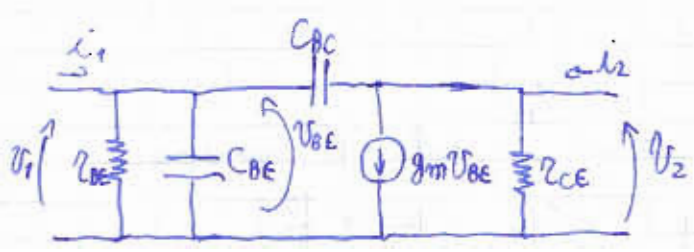 i₁
C_BC
i₂
v₁
r_BE
C_BE
v_BE
g_m v_BE
r_CE
v₂